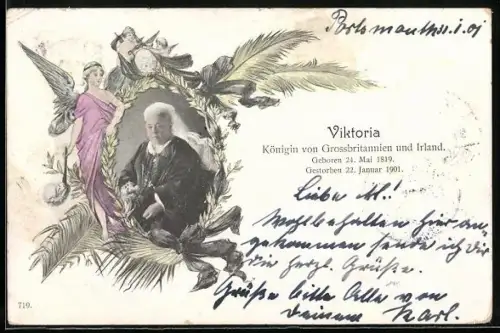 Portsmouth 11.i.01
Viktoria
Königin von Grossbritannien und Irland.
Geboren 24. Mai 1819.
Gestorben 22. Januar 1901.
Liebe M.!
Wohlbehalten hier an-
gekommen sende ich Dir
die herzl. Grüße.
Grüße bitte Alle von
Deinem Karl.
710.